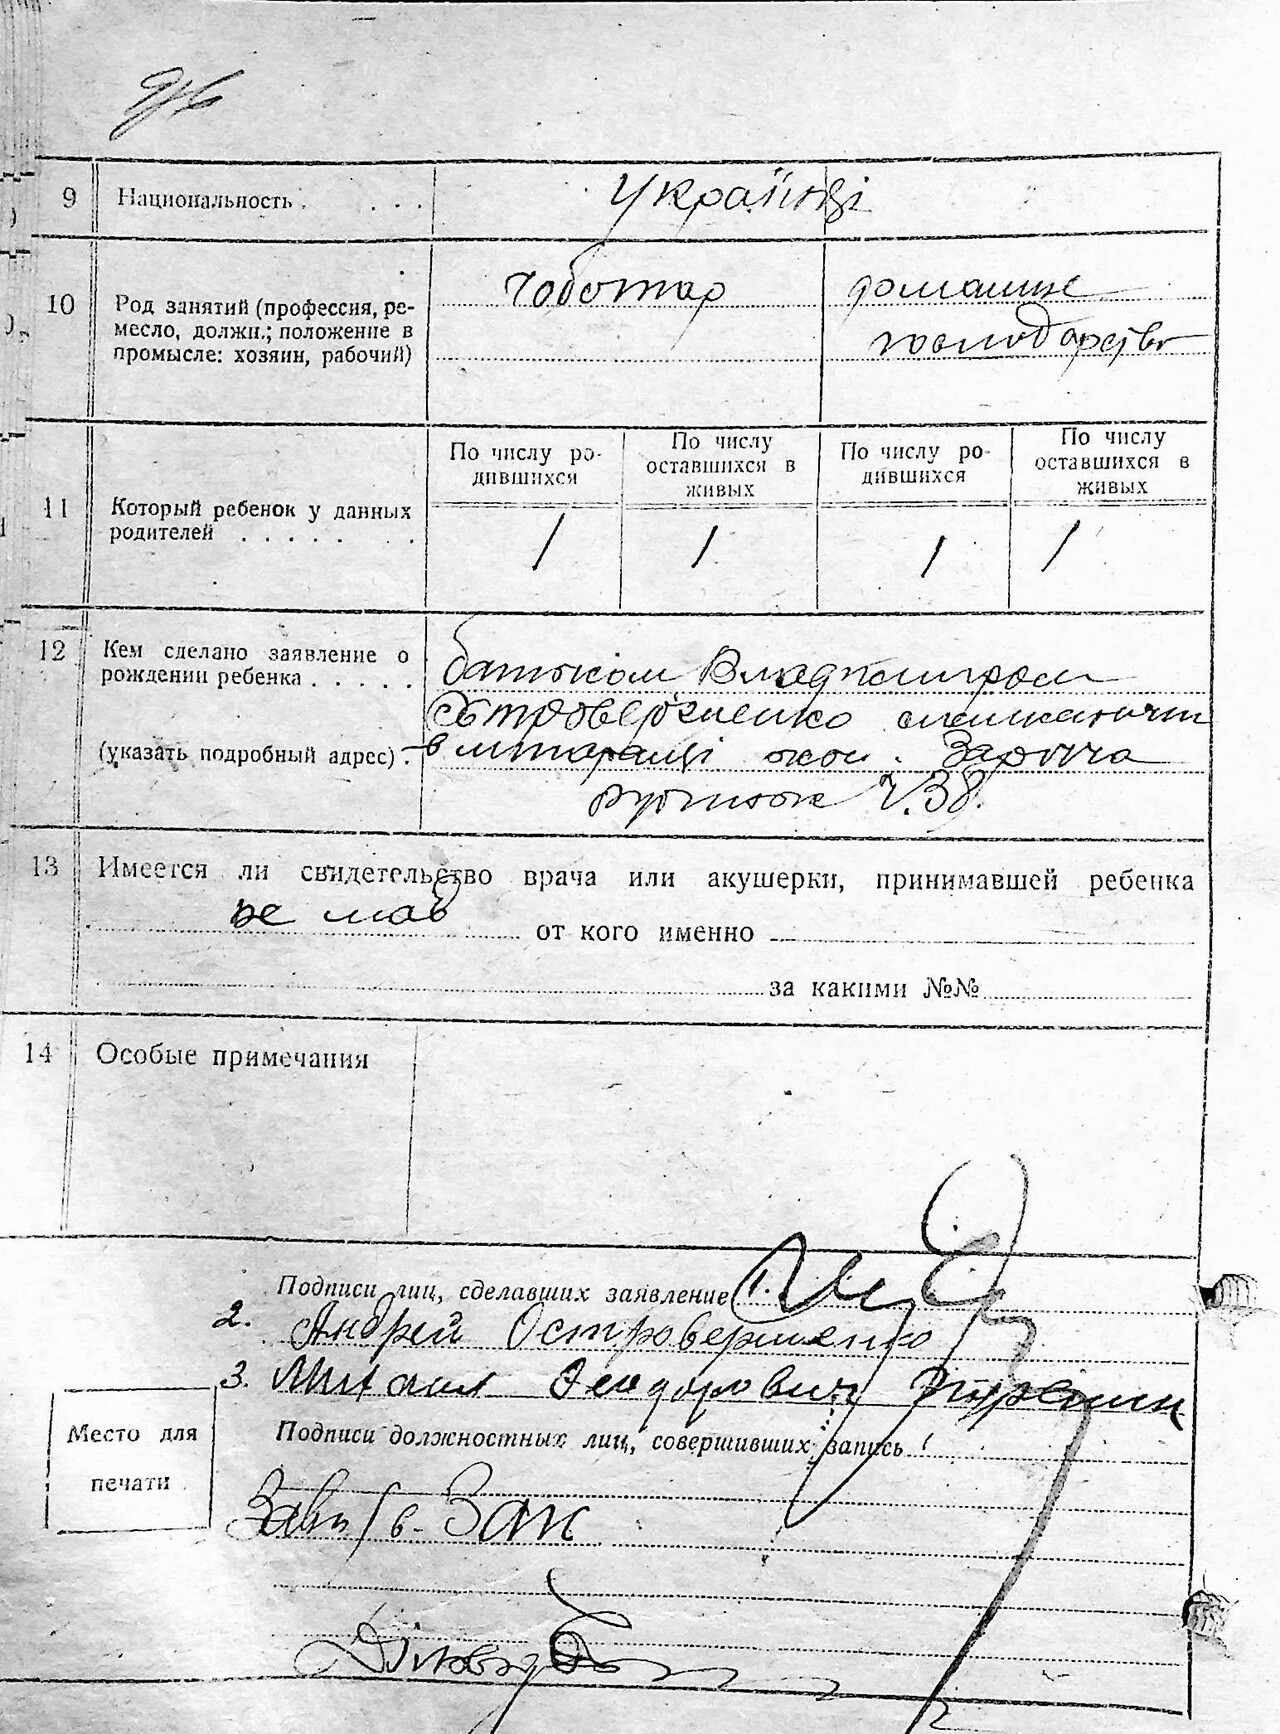 9 Национальность . . . . Українці
10 Род занятий (профессия, ре-
месло, должн.; положение в
промысле: хозяин, рабочий)
чоботар
домашнє
господарство
11 Который ребенок у данных
родителей . . . . . . .
По числу ро-
дившихся
По числу
оставшихся в
живых
По числу ро-
дившихся
По числу
оставшихся в
живых
1 1 1 1
12 Кем сделано заявление о
рождении ребенка . . . . .
(указать подробный адрес) .
батьком Владимиром
Островершенко
в
ч. 38.
13 Имеется ли свидетельство врача или акушерки, принимавшей ребенка
не мав от кого именно
за какими №№
14 Особые примечания
Подписи лиц, сделавших заявление 1.
2. Андрей Островершенко
3. Михаил Феодорович
Место для
печати
Подписи должностных лиц, совершивших запись